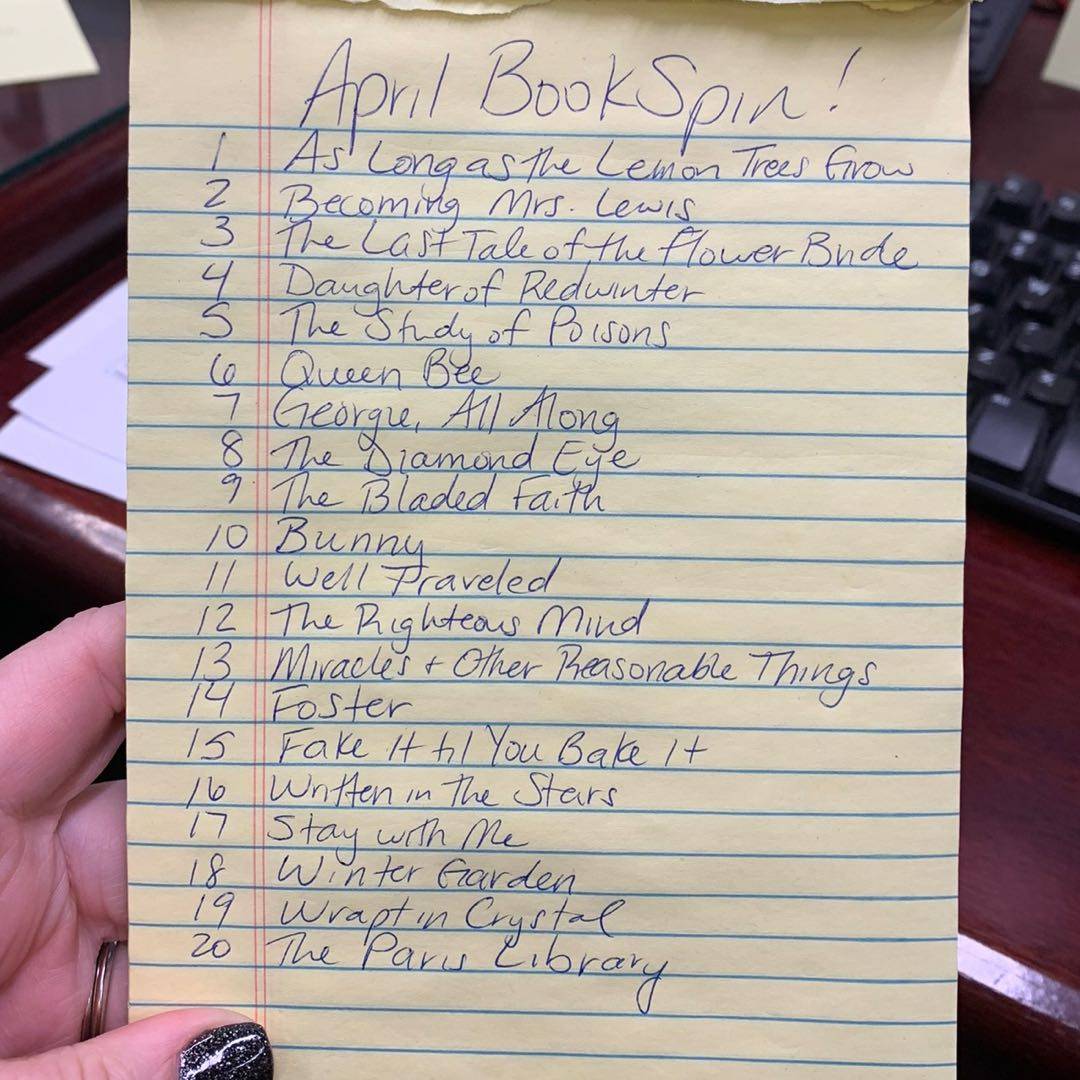 April BookSpin!
1 As Long as the Lemon Trees Grow
2 Becoming Mrs. Lewis
3 The Last Tale of the Flower Bride
4 Daughter of Redwinter
5 The Study of Poisons
6 Queen Bee
7 Georgie, All Along
8 The Diamond Eye
9 The Bladed Faith
10 Bunny
11 Well Traveled
12 The Righteous Mind
13 Miracles + Other Reasonable Things
14 Foster
15 Fake It til You Bake It
16 Written in the Stars
17 Stay with Me
18 Winter Garden
19 Wrapt in Crystal
20 The Paris Library